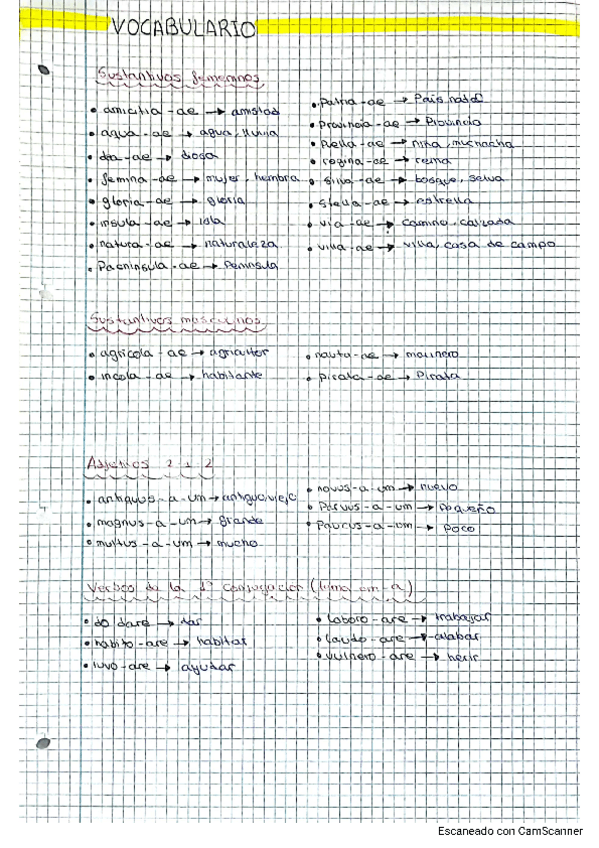 VOCABULARIO
Sustantivos femeninos
• amicitia - ae → amistad
• aqua - ae → agua, lluvia
• dea - ae → diosa
• femina - ae → mujer, hembra
• gloria - ae → gloria
• insula - ae → isla
• natura - ae → naturaleza
• Paeninsula - ae → Península
• Patria - ae → País natal
• Provincia - ae → Provincia
• Puella - ae → niña, muchacha
• regina - ae → reina
• silva - ae → bosque, selva
• stella - ae → estrella
• via - ae → camino, calzada
• villa - ae → villa, casa de campo
Sustantivos masculinos
• agricola - ae → agricultor
• incola - ae → habitante
• nauta - ae → marinero
• pirata - ae → Pirata
Adjetivos 2 1 2
• antiquus - a - um → antiguo, viejo
• magnus - a - um → grande
• multus - a - um → mucho
• novus - a - um → nuevo
• Parvus - a - um → pequeño
• Paucus - a - um → poco
Verbos de la 1ª conjugación (tema en - a)
• do dare → dar
• habito - are → habitar
• iuvo - are → ayudar
• laboro - are → trabajar
• laudo - are → alabar
• vulnero - are → herir
Escaneado con CamScanner